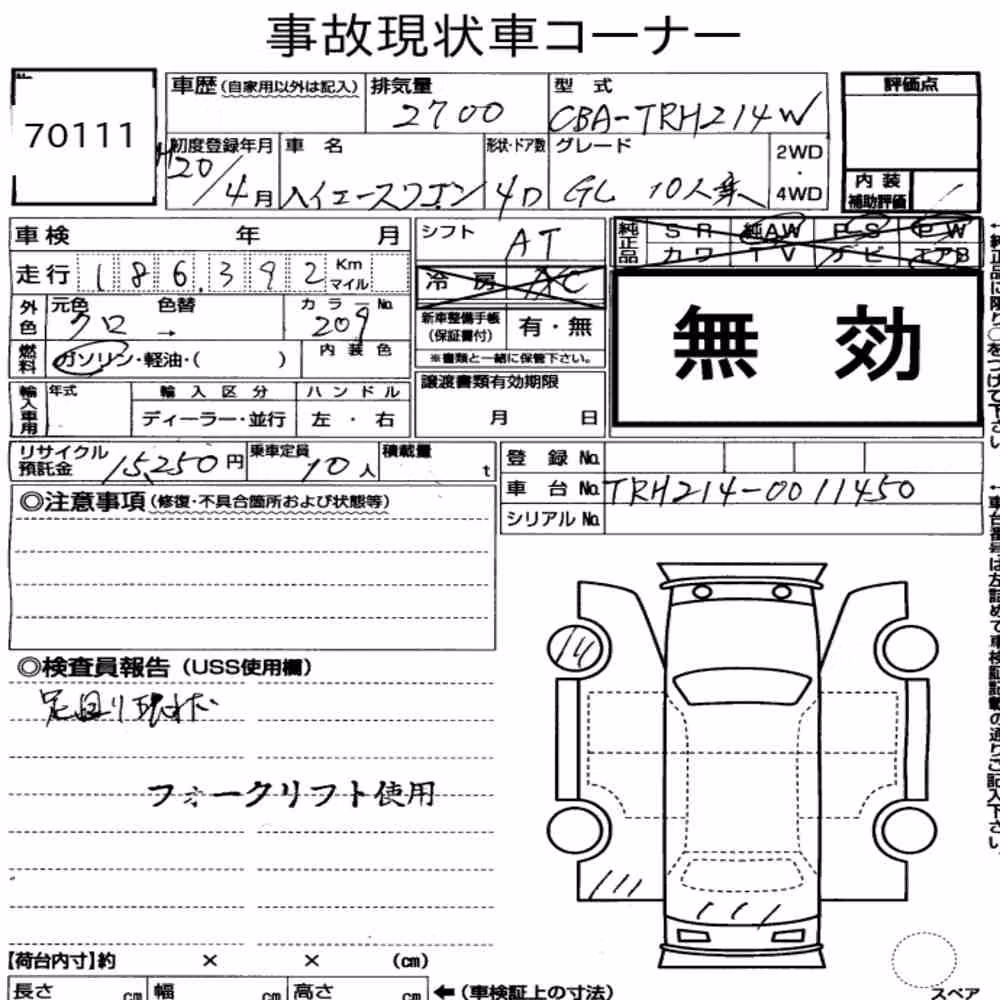 事故現状車コーナー
70111
車歴 (自家用以外は記入) 排気量 型式 評価点
2700 CBA-TRH214W
初度登録年月 車名 形状・ドア数 グレード 2WD・4WD
H20/4月 ハイエースワゴン 4D GL 10人乗
内装補助評価
車検 年 月 シフト AT
純正品 SR 純AW PS PW
カワ TV ナビ エアB
走行 186,392 Km マイル
冷房 AC
無効
外色 元色 色替 カラーNo.
クロ → 209
新車整備手帳 (保証書付) 有・無
※書類と一緒に保管下さい。
燃料 ガソリン・軽油・( ) 内装色
輸入車用 年式 輸入区分 ハンドル
ディーラー・並行 左・右
譲渡書類有効期限
月 日
リサイクル預託金 15,250円 乗車定員 10人 積載量 t
登録No.
車台No. TRH214-0011450
シリアルNo.
◎注意事項 (修復・不具合箇所および状態等)
◎検査員報告 (USS使用欄)
足回り現状
フォークリフト使用
【荷台内寸】約 × × (cm)
長さ cm 幅 cm 高さ cm ←(車検証上の寸法)
スペア
←純正品に限り○をつけて下さい
←車台番号は左詰めで車検証記載の通りご記入下さい。